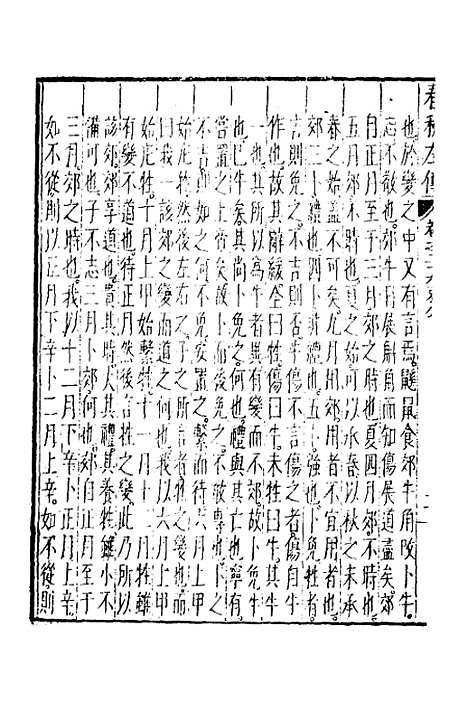 春秋左傳
也於變之中又有言焉。鼷鼠食郊牛角改卜牛。
志不敬也。郊牛日展斛角而知傷展道盡矣。郊
自正月至于三月郊之時也。夏四月郊不時也。
五月郊不時也。夏之始可以承春。以秋之末承
春之始蓋不可矣。九月用郊用者不宜用者也。
郊三卜禮也。四卜非禮也。五卜強也。卜免牲者。
吉則免之。不吉則否。牛傷不言傷之者傷自牛
作也。故其辭緩。全曰牲傷曰牛。未牲曰牛。其牛
一也。其所以為牛者異。有變而不郊。故卜免牛
也。已牛矣其尚卜免之何也。禮與其亡也寧有。
嘗置之上帝矣。故卜而後免之。不敢專也。卜之
不吉則如之何。不免安置之。繫而待六月上甲
始庀牲。然後左右之。子之所言者牲之變也。而
曰我一該郊之變而道之何也。我以六月上甲
始庀牲。十月上甲始繫牲。十一月十二月牲雖
有變不道也。待正月然後言牲之變此乃所以
該郊。郊享道也。貴其時大其禮。其養牲雖小不
備可也。子不志三月卜郊何也。郊自正月至于
三月郊之時也。我以十二月下辛卜正月上辛
如不從則以正月下辛卜二月上辛。如不從則